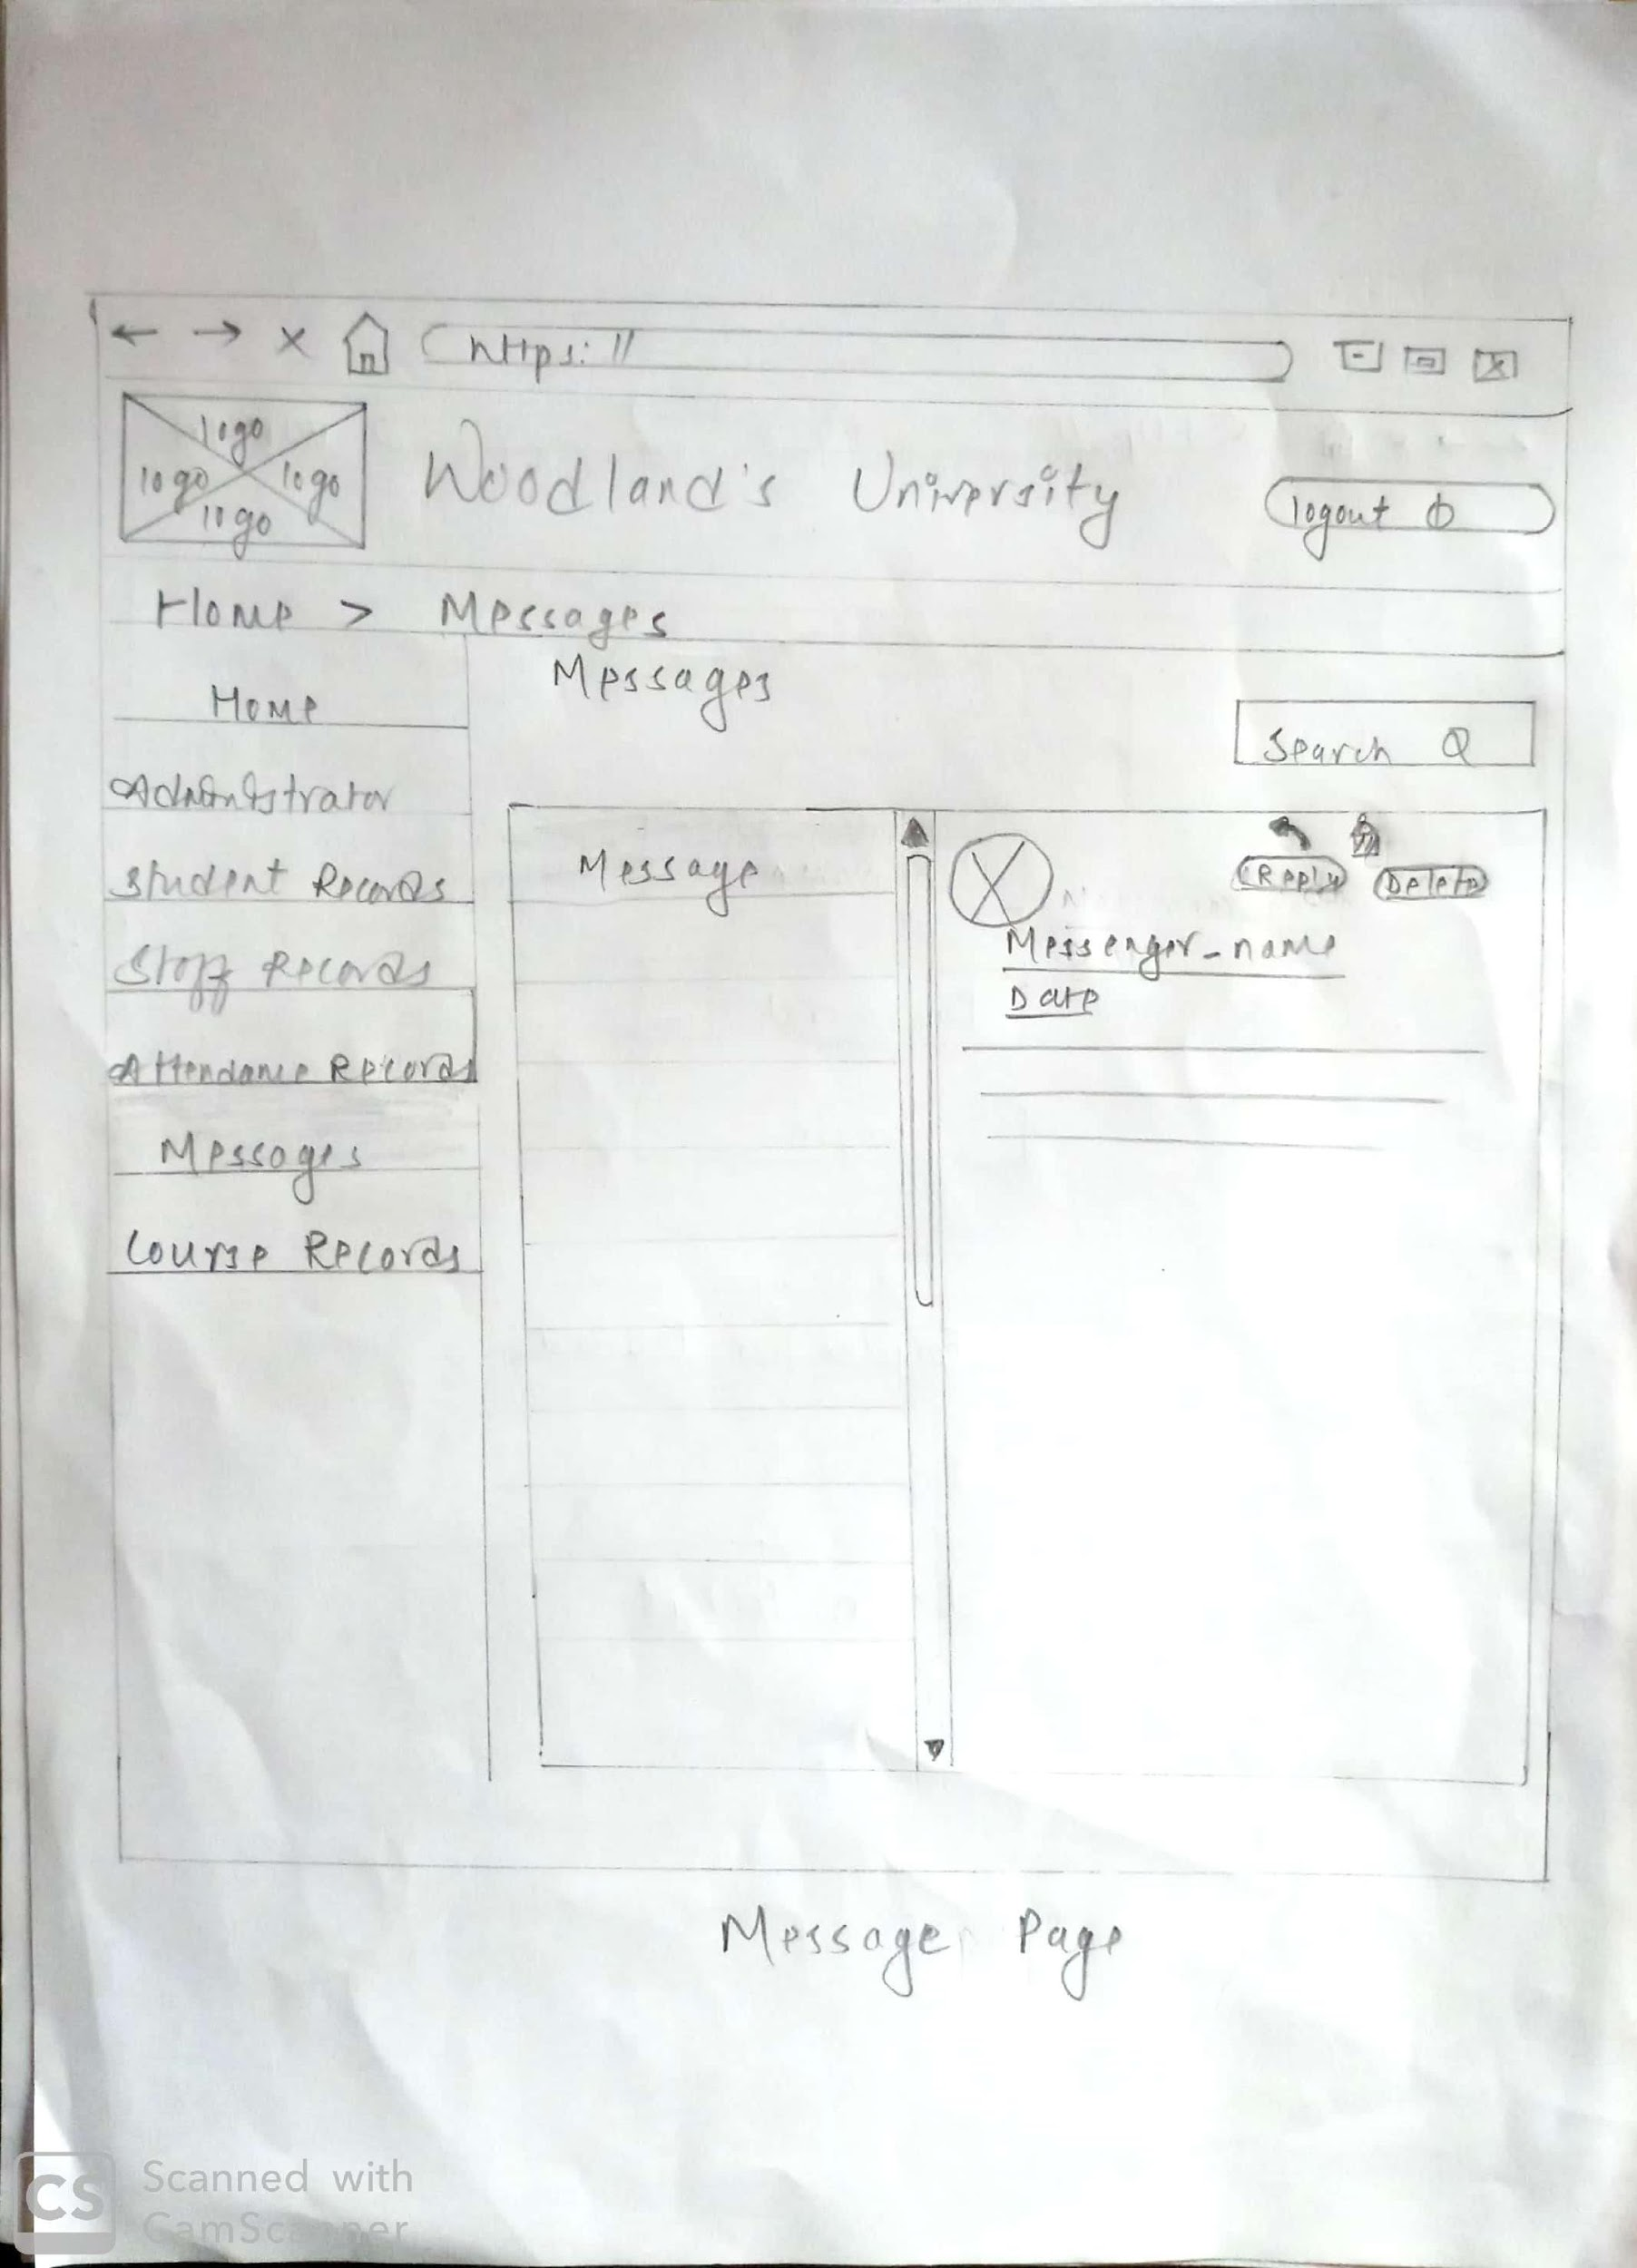 https://
logo
logo logo
logo
Woodland's University
logout
Home > Messages
Messages
Home
Search
Administrator
Student Records
Staff Records
Attendance Records
Messages
Course Records
Message
Reply Delete
Messenger-name
Date
Message Page
CS Scanned with
CamScanner